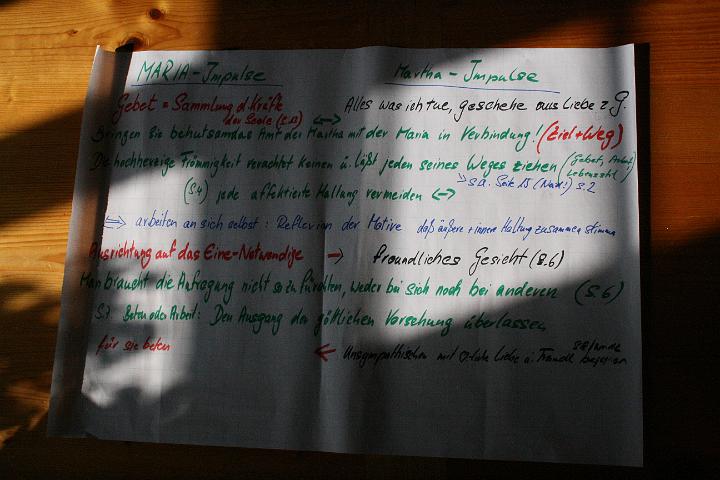 MARIA-Impulse Martha-Impulse
Gebet = Sammlung d. Kräfte
der Seele <-> Alles was ich tue, geschehe aus Liebe z. G.
Bringen Sie behutsam das Amt der Martha mit der Maria in Verbindung! (Ziel+Weg)
Die hochherzige Frömmigkeit verachtet keinen u. läßt jeden seines Weges ziehen (Gebet, Arbeit,
(S.4) jede affektierte Haltung vermeiden <-> s.a. Seite S.2
<=> arbeiten an sich selbst: Reflexion der Motive daß äußere + innere Haltung zusammen stimmen
Ausrichtung auf das Eine-Notwendige -> freundliches Gesicht (S.6)
Man braucht die Aufregung nicht so zu fürchten, weder bei sich noch bei anderen (S.6)
S.7. Beten oder Arbeit: Den Ausgang der göttlichen Vorsehung überlassen
für sie beten <- Unsympathischen mit Liebe u. begegnen